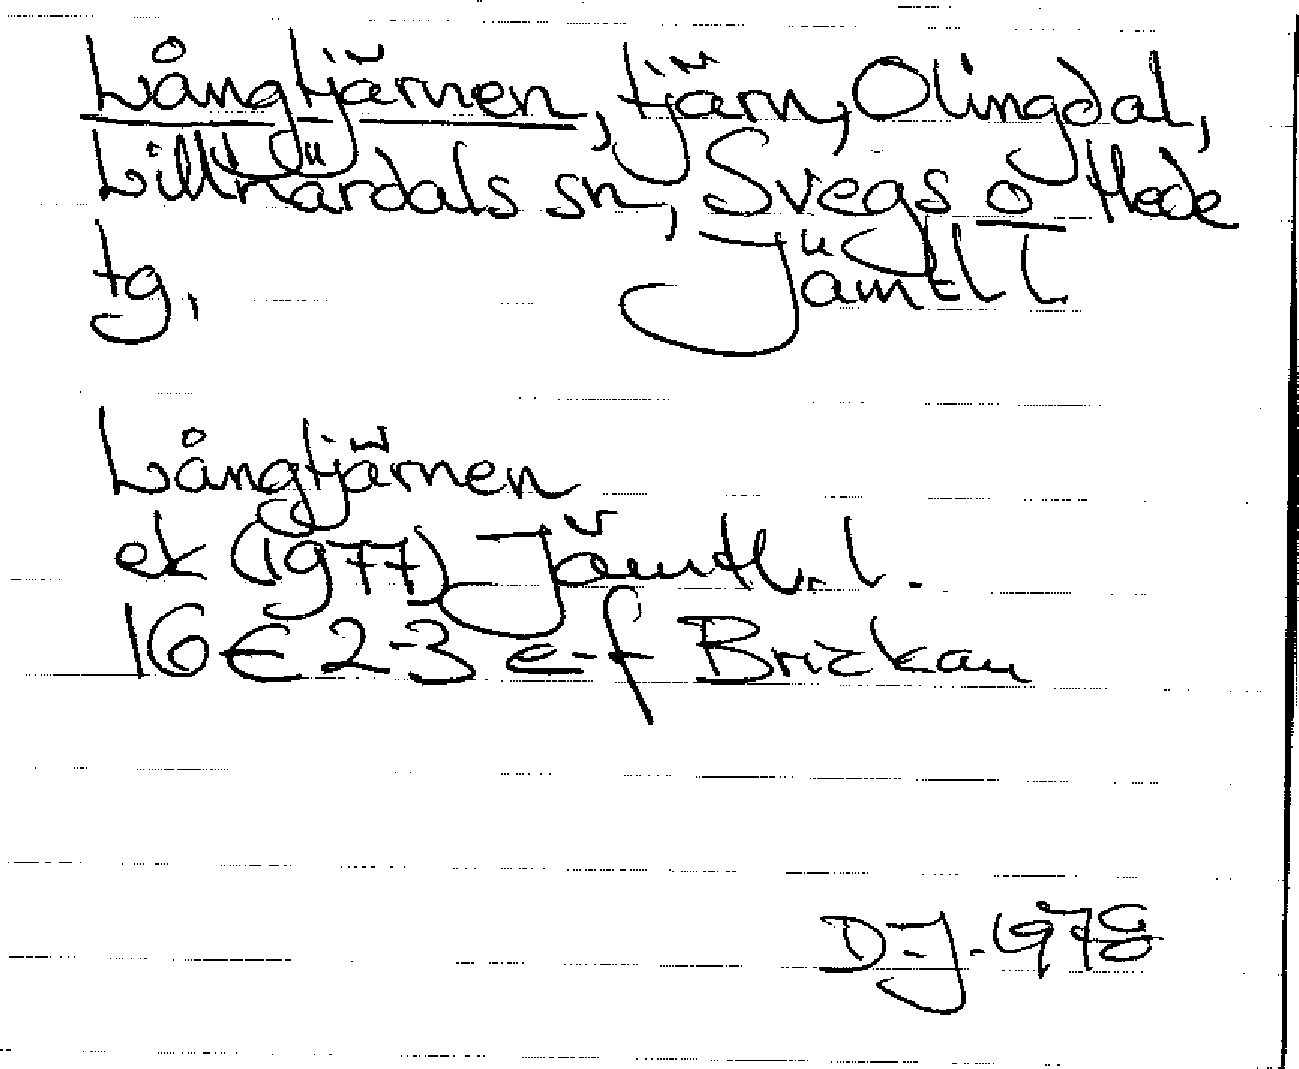 Långtjärnen, tjärn, Olingdal,
Lillhärdals sn, Svegs o Hede
tg. Jämtl l
Långtjärnen
ek (1977) Jämtl. l.
16E 2-3 e-f Brickan
D-J. 1978